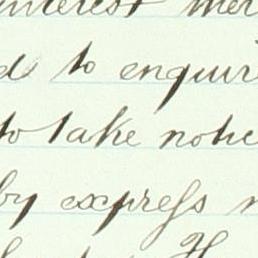 interest
to enquir
to take notice
by express